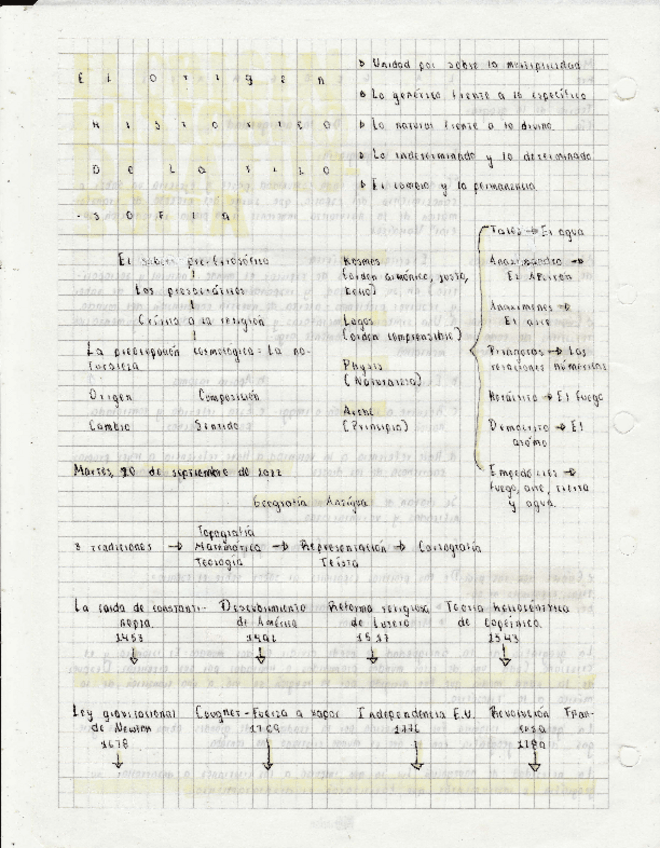 El origen
historico
De la filo
-sofia
▷ Unidad por sobre la multiplicidad
▷ Lo genérico frente a lo específico
▷ Lo natural frente a lo divino.
▷ Lo indeterminado y lo determinado
▷ El cambio y la permanencia
El saber pre-filosófico
↓
Los presocráticos
↓
Crítica a la religión
↓
La preocupación cosmológica: La na-
turaleza
Origen Composición
Cambio Sentido
Kosmos
(orden armónico, justo,
bello)
Logos
(orden comprensible)
Physis
(Naturaleza)
Arché
(Principio)
Tales → El agua
Anaximandro →
El Ápeiron
Anaxímenes →
El aire
Pitágoras → Las
relaciones numéricas
Heráclito → El fuego
Demócrito → El
átomo
Empédocles →
fuego, aire, tierra
y agua.
Martes, 20 de septiembre de 2022
Geografía Antigua
3 tradiciones → Topografía
Matemática → Representación → Cartografía
Teología Teísta
La caída de constanti-
nopla.
1453
Descubrimiento
de América
1492
Reforma religiosa
de Lutero
1517
Teoría heliocéntrica
de Copérnico.
1543
Ley gravitacional
de Newton
1678
Cougnet-Fuerza a vapor
1769
Independencia E.U.
1776
Revolución Fran-
cesa
1789